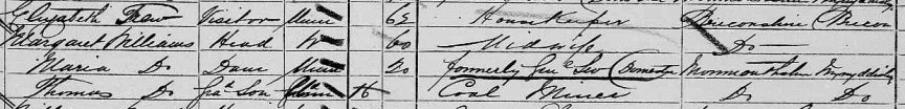 Elizabeth Trew Visitor Unm 62 House Keeper Breconshire Brecon
Margaret Williams Head W 60 Midwife Do
Maria Do Daur Unm 20 formerly Genl Serv (Domestic Monmouthshire
Thomas Do Grd Son Coal Miner Do Do